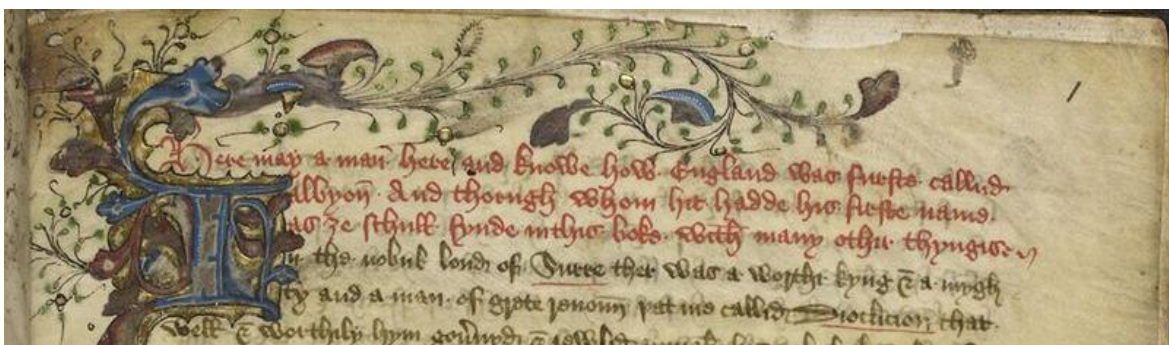 Here may a man here and knowe how England was furste callid
Albyon And thorugh whom hit hadde his firste name
as ȝe schull fynde in this boke with many othir thyngise
In the nobill londe of Surre ther was a worthi kyng & a mygh
ty and a man of grete renoun þat me callid Dioclician that
well & worthily hym